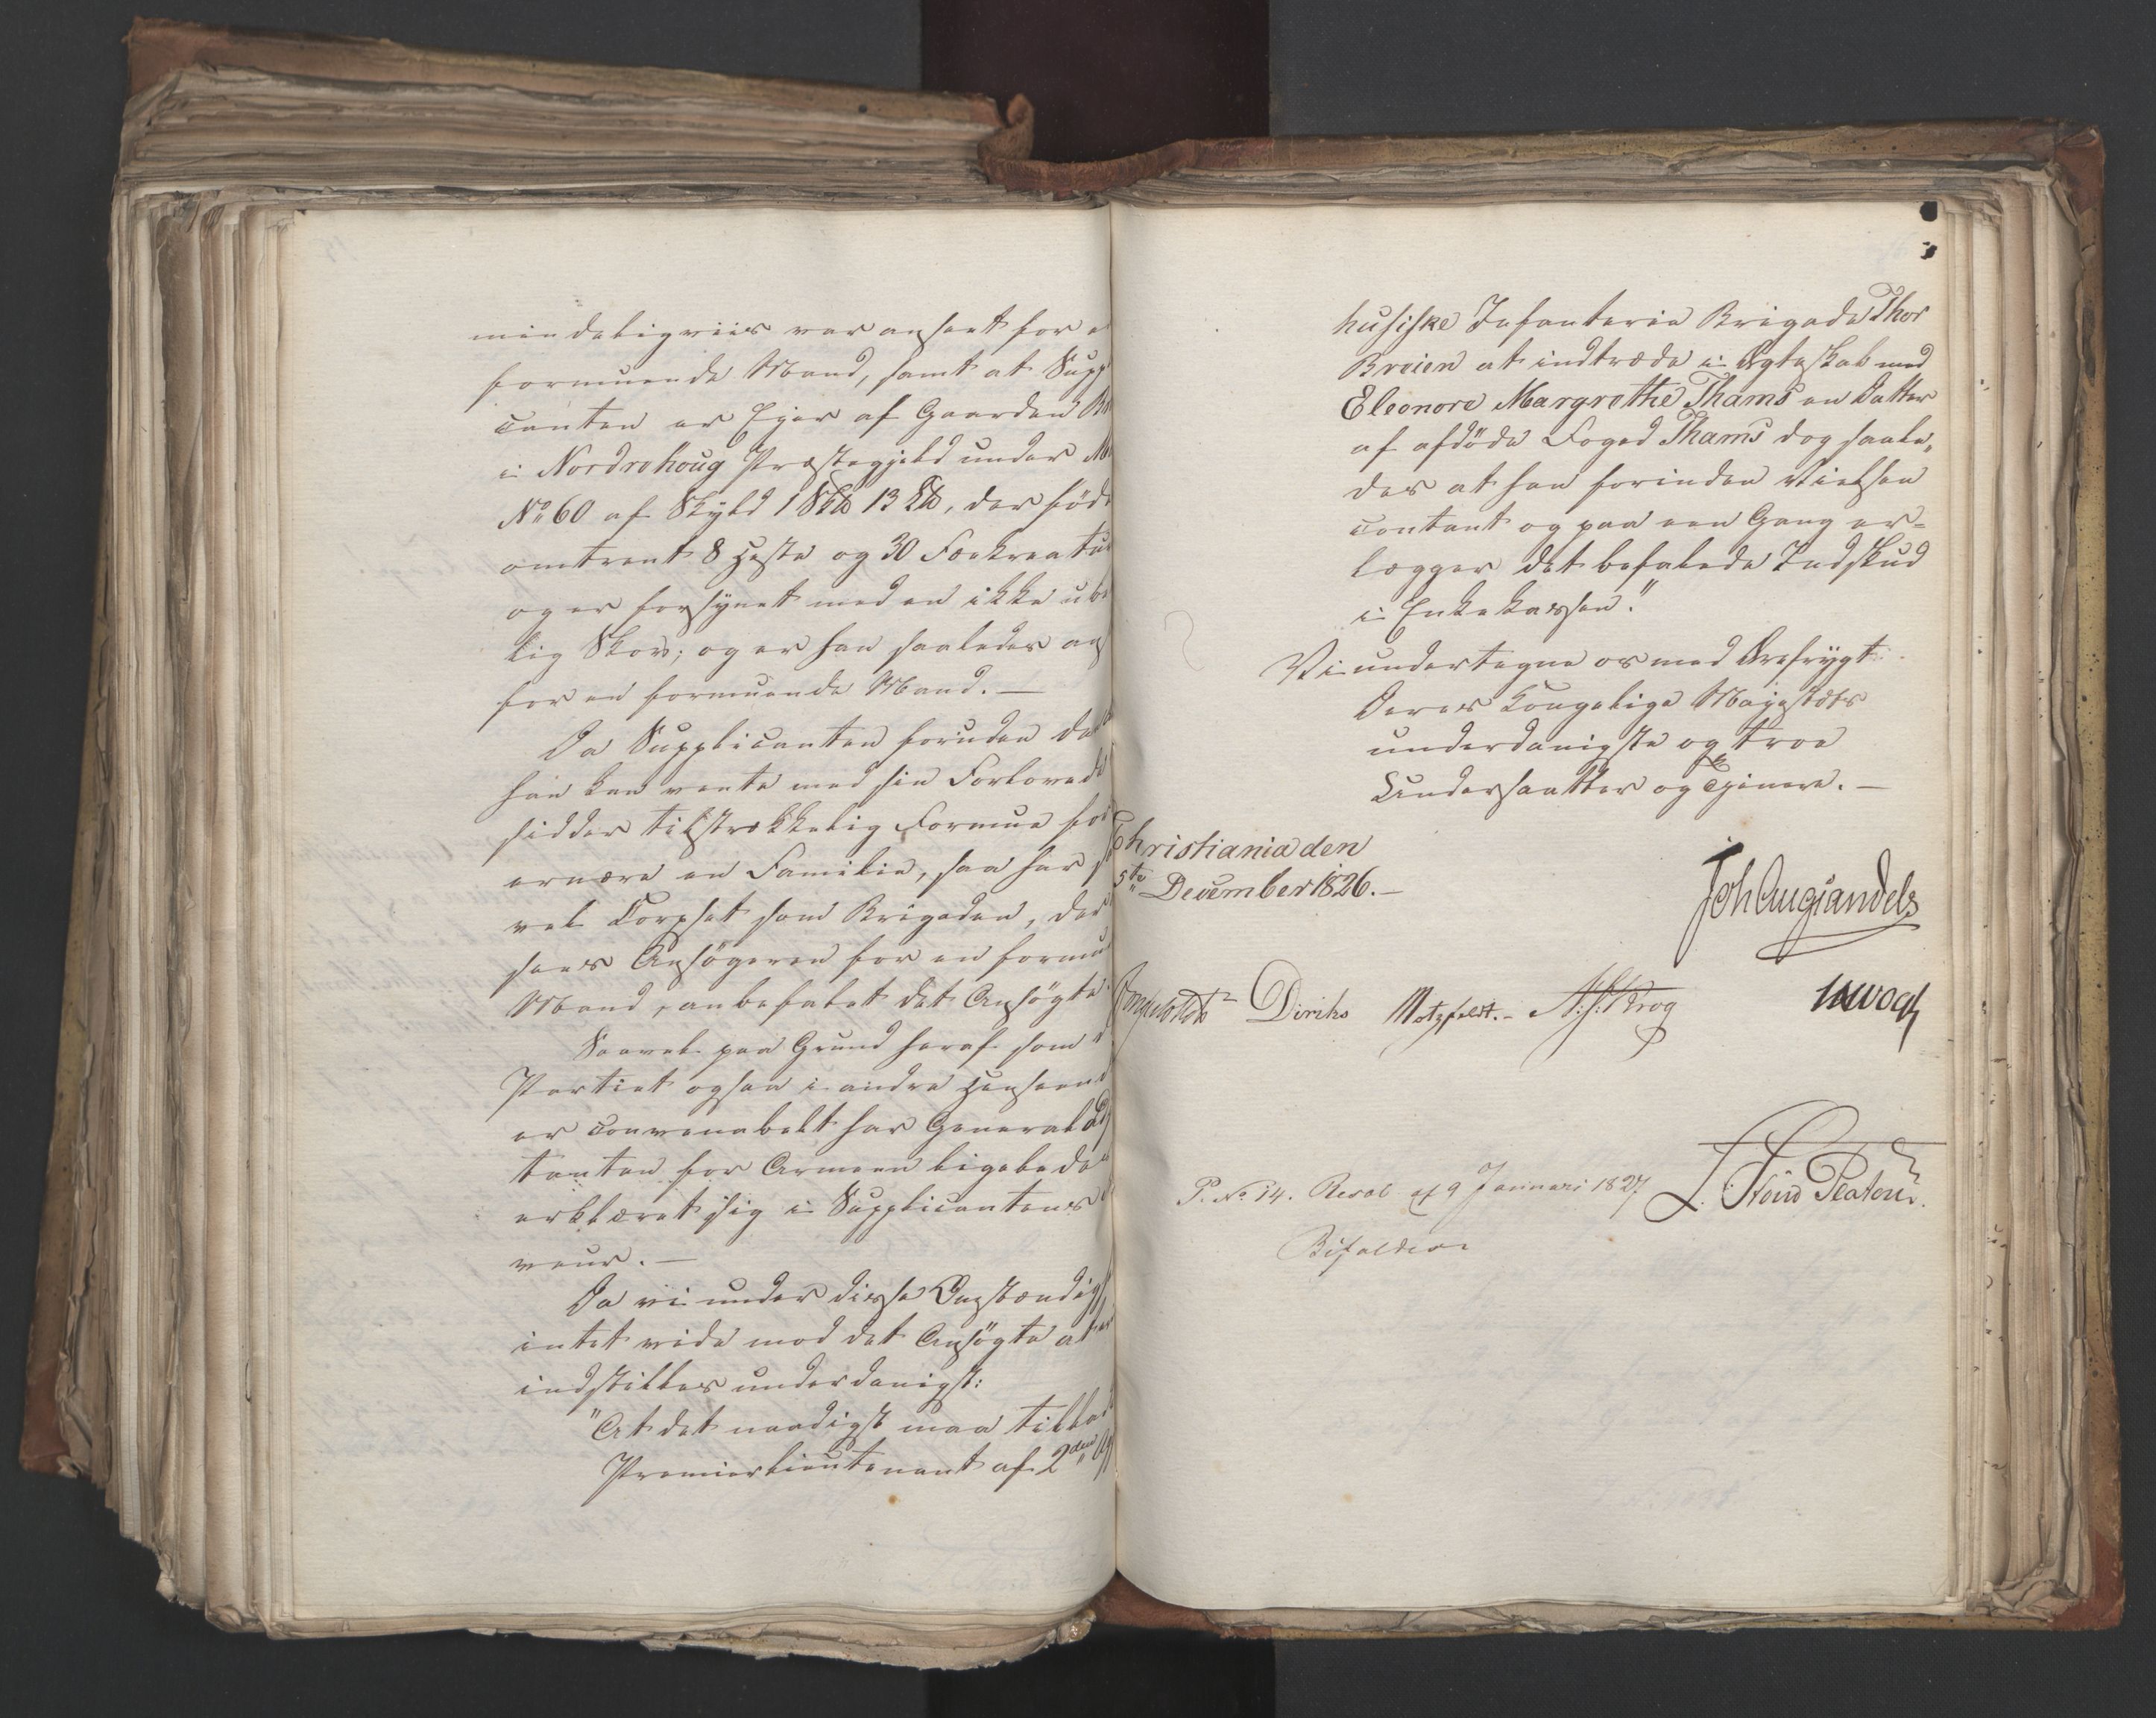 mindeligviis var anseet for e
formuende Mand, samt at Suppl
canten er Ejer af Gaarden
i Nordrehoug Præstegjeld under
No 60 af Skyld 1 Sk℔ 13 L℔, der föde
omtrent 8 Heste og 30 Fækreatu
og er forsynet med en ikke ube
lig Skov; og er han saaledes ans
for en formuende Mand. —
Da Supplicanten foruden de
han kan vente med sin Forlovede
sidder tilstrækkelig Formue for
ernære en Familie, saa har s
vel Corpset som Brigaden, der
sees Ansögeren for en formu
Mand, anbefalet det Ansögte.
Saavel paa Grund heraf som
Partiet ogsaa i andre Henseend
er convenabelt har General Adj
tanten for Armeen ligeledes
erklæret sig i Supplicantens
veur. —
Da vi under disse Omstændigh
intet vide mod det Ansögte at er
indstilles underdanigst:
"At det naadigst maa tillade
Premierlieutenant af 2den
husiske Infanterie Brigade Thor
Breien at indtræde i Ægteskab med
Eleonore Margrethe Thams en Datter
af afdöde Foged Thams dog saale„
des at han forinden Vielsen
contant og paa een Gang er=
lægger det befalede Indskud
i Enkekassen."
Vi undertegne os med Ærefrygt
Deres Kongelige Majestæts
underdanigste og troe
Undersaatter og Tjenere. —
Christiania den
5te December 1826. —
Joh Aug Sandels
Diriks Motzfeldt. - Krog
P. No 14. Resol af 9 Januari 1827.
Platen.
Bifaldes